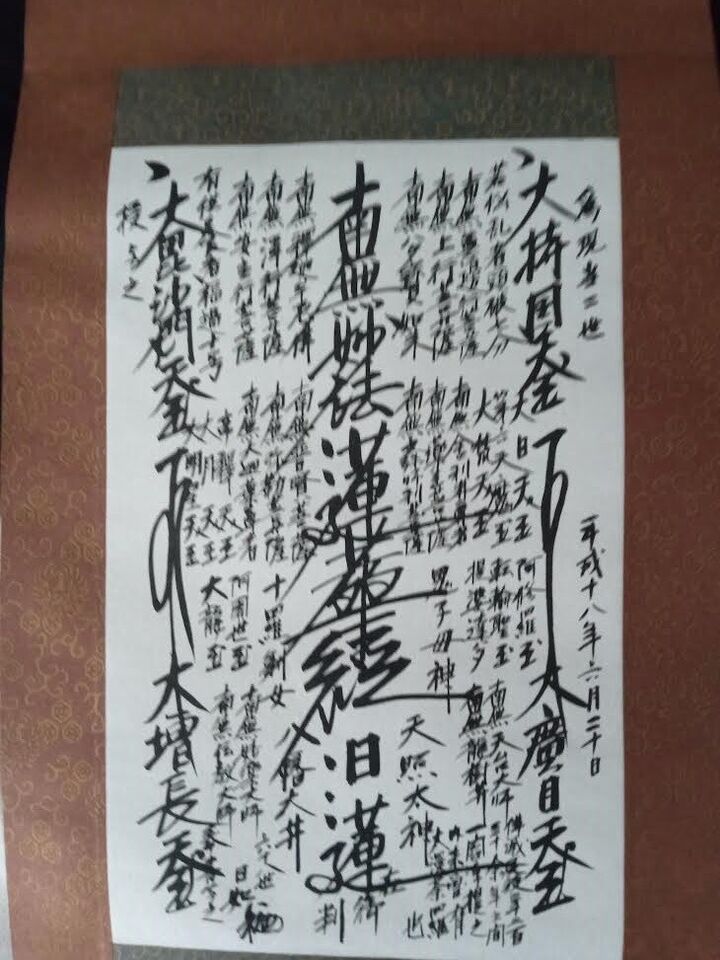 為現当二世
平成十八年六月二十日
大持国天王
大廣目天王
若悩乱者頭破七分
南無無邊行菩薩
南無上行菩薩
南無多寶如来
大日天王
第六天魔王
大梵天王
南無舎利弗尊者
南無薬王菩薩
南無文殊師利菩薩
阿修羅王
転輪聖王
提婆達多
鬼子母神
南無天台大師
南無龍樹井
天照太神
大漫荼羅也
南無妙法蓮華経
日蓮
在御判
南無釋迦牟尼佛
南無浄行菩薩
南無安立行菩薩
有供養者福過十号
南無普賢菩薩
南無弥勒菩薩
南無大迦葉尊者
帝釋天王
大月天王
大明星天王
十羅刹女
阿闍世王
大龍王
八幡大井
南無妙楽大師
南無伝教大師
六十八世
日如
大毘沙門天王
大増長天王
授与之